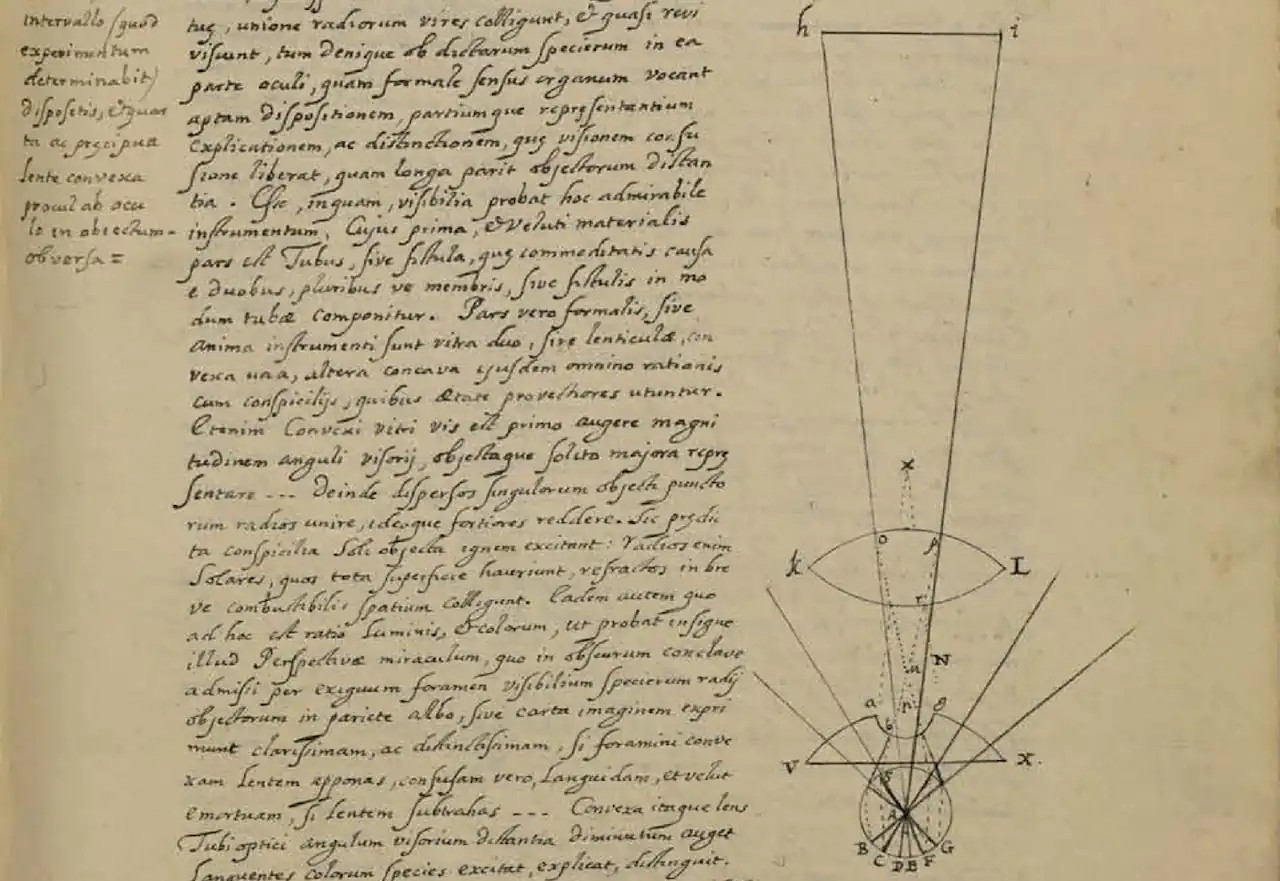 intervallo (quod
experimentum
determinabit)
dispositis, & quar
ta ac pręcipua
lente convexa
procul ab ocu
lo in obiectum
obversa =
tuę, unione radiorum vires colligunt, & quasi revi
viscunt, tum denique ob dictarum specierum in ea
parte oculi, quam formale sensus organum vocant
aptam dispositionem, partiumque repręsentantium
explicationem, ac distinctionem, quę visionem confu
sione liberat, quam longa parit objectorum distan
tia. Esse, inquam, visibilia probat hoc admirabile
instrumentum, Cujus prima, & veluti materialis
pars est Tubus, sive fistula, quę commoditatis causa
e duobus, pluribus ve membris, sive fistulis in mo
dum tubæ componitur. Pars vero formalis, sive
anima instrumenti sunt vitra duo, sive lenticulæ, con
vexa una, altera concava ejusdem omnino rationis
cum conspicilijs, quibus ætate provectiores utuntur.
Etenim Convexi vitri vis est primo augere magni
tudinem anguli visorij, objectaque solito majora reprę
sentare --- Deinde dispersos singulorum objecti puncto
rum radios unire, ideoque fortiores reddere. Sic prędic
ta conspicilia Soli objecta ignem excitant: radios enim
Solares, quos tota superficie hauriunt, refractos in bre
ve combustibilis spatium colligunt. Eadem autem quo
ad hoc est ratio Luminis, & colorum, ut probat insigne
illud Perspectivæ miraculum, quo in obscurum conclave
admissi per exiguum foramen visibilium specierum radij
objectorum in pariete albo, sive carta imaginem expri
munt clarissimam, ac distinctissimam, si foramini conve
xam Lentem apponas, confusam vero, Languidam, et velut
emortuam, si Lentem subtrahas --- Convexa itaque lens
Tubi optici angulum visorium distantia diminutum auget
Languentes colorum species excitat, explicat, distinguit.
h i
x
o p
K L
r
N
n
a
V X.
A
B C D E F G